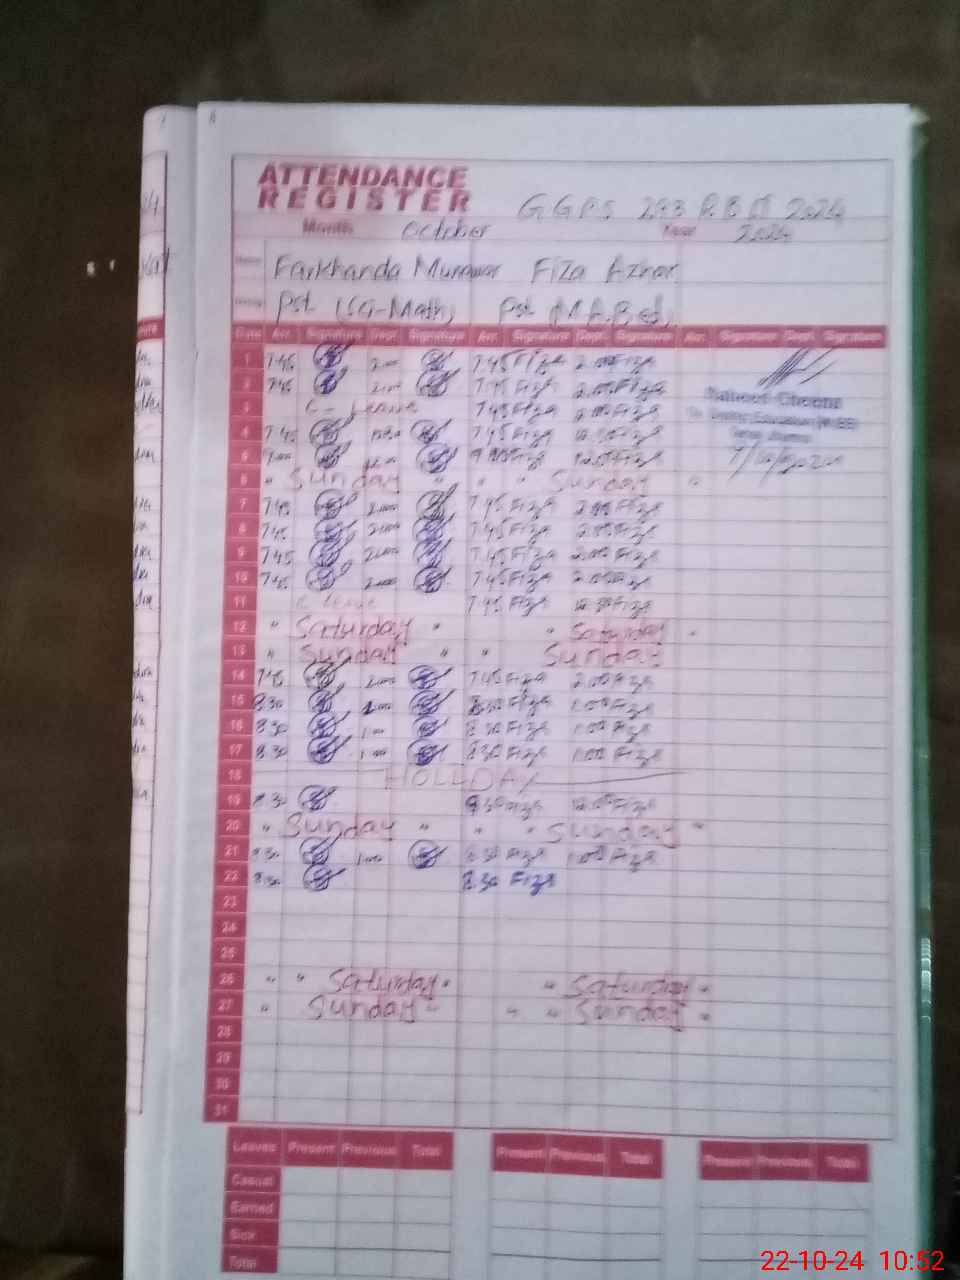 ATTENDANCE
REGISTER
GGPS 293 R.B 2024
Month October Year 2024
Farkhanda Munawar Fiza Azhar
Pst (Sci-Math) Pst M.A.B.Ed
Date Arr. Signature Dept. Signature Arr. Signature Dept. Signature Arr. Signature Dept. Signature
1 7:45 2:00 7:45 Fiza 2:00 Fiza
2 7:45 2:00 7:45 Fiza 2:00 Fiza
3 C- Leave 7:45 Fiza 2:00 Fiza
4 7:45 7:45 Fiza Fiza
5 12:00 Fiza
6 " Sunday " " " Sunday "
7 7:45 2:00 7:45 Fiza 2:00 Fiza
8 7:45 2:00 7:45 Fiza 2:00 Fiza
9 7:45 2:00 7:45 Fiza 2:00 Fiza
10 7:45 2:00 7:45 Fiza 2:00 Fiza
11 C Leave 7:45 Fiza Fiza
12 " Saturday " " Saturday "
13 " Sunday " " Sunday
14 7:45 2:00 7:45 Fiza 2:00 Fiza
15 8:30 1:00 8:30 Fiza 1:00 Fiza
16 8:30 1:00 8:30 Fiza 1:00 Fiza
17 8:30 1:00 8:30 Fiza 1:00 Fiza
18 HOLIDAY
19 8:30 8:30 Fiza 12:00 Fiza
20 " Sunday " " " Sunday "
21 8:30 1:00 8:30 Fiza 1:00 Fiza
22 8:30 8:30 Fiza
23
24
25
26 " " Saturday " " Saturday "
27 " Sunday " " " Sunday "
28
29
30
31
Leaves Present Previous Total Present Previous Total Present Previous Total
Casual
Earned
Sick
Total
22-10-24 10:52